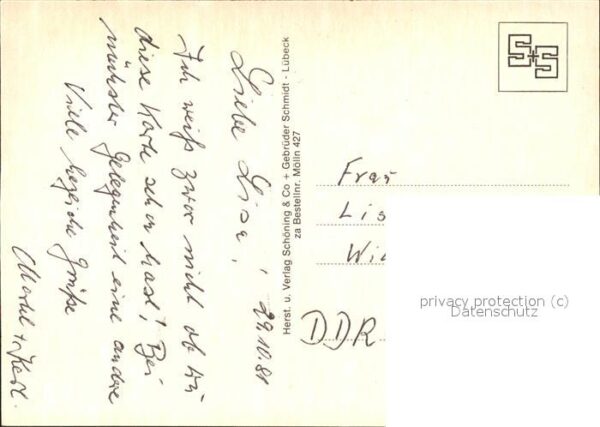 Liebe Lisa!
29.10.81
Ich weiß zwar nicht ob Du
diese Karte schon hast! Bei
nächster Gelegenheit eine andere
Viele herzliche Grüße
Martel + Karl.
Herst. u. Verlag Schöning & Co + Gebrüder Schmidt - Lübeck
za Bestellnr. Mölln 427
S+S
Frau
Lis
Wi
DDR
privacy protection (c)
Datenschutz